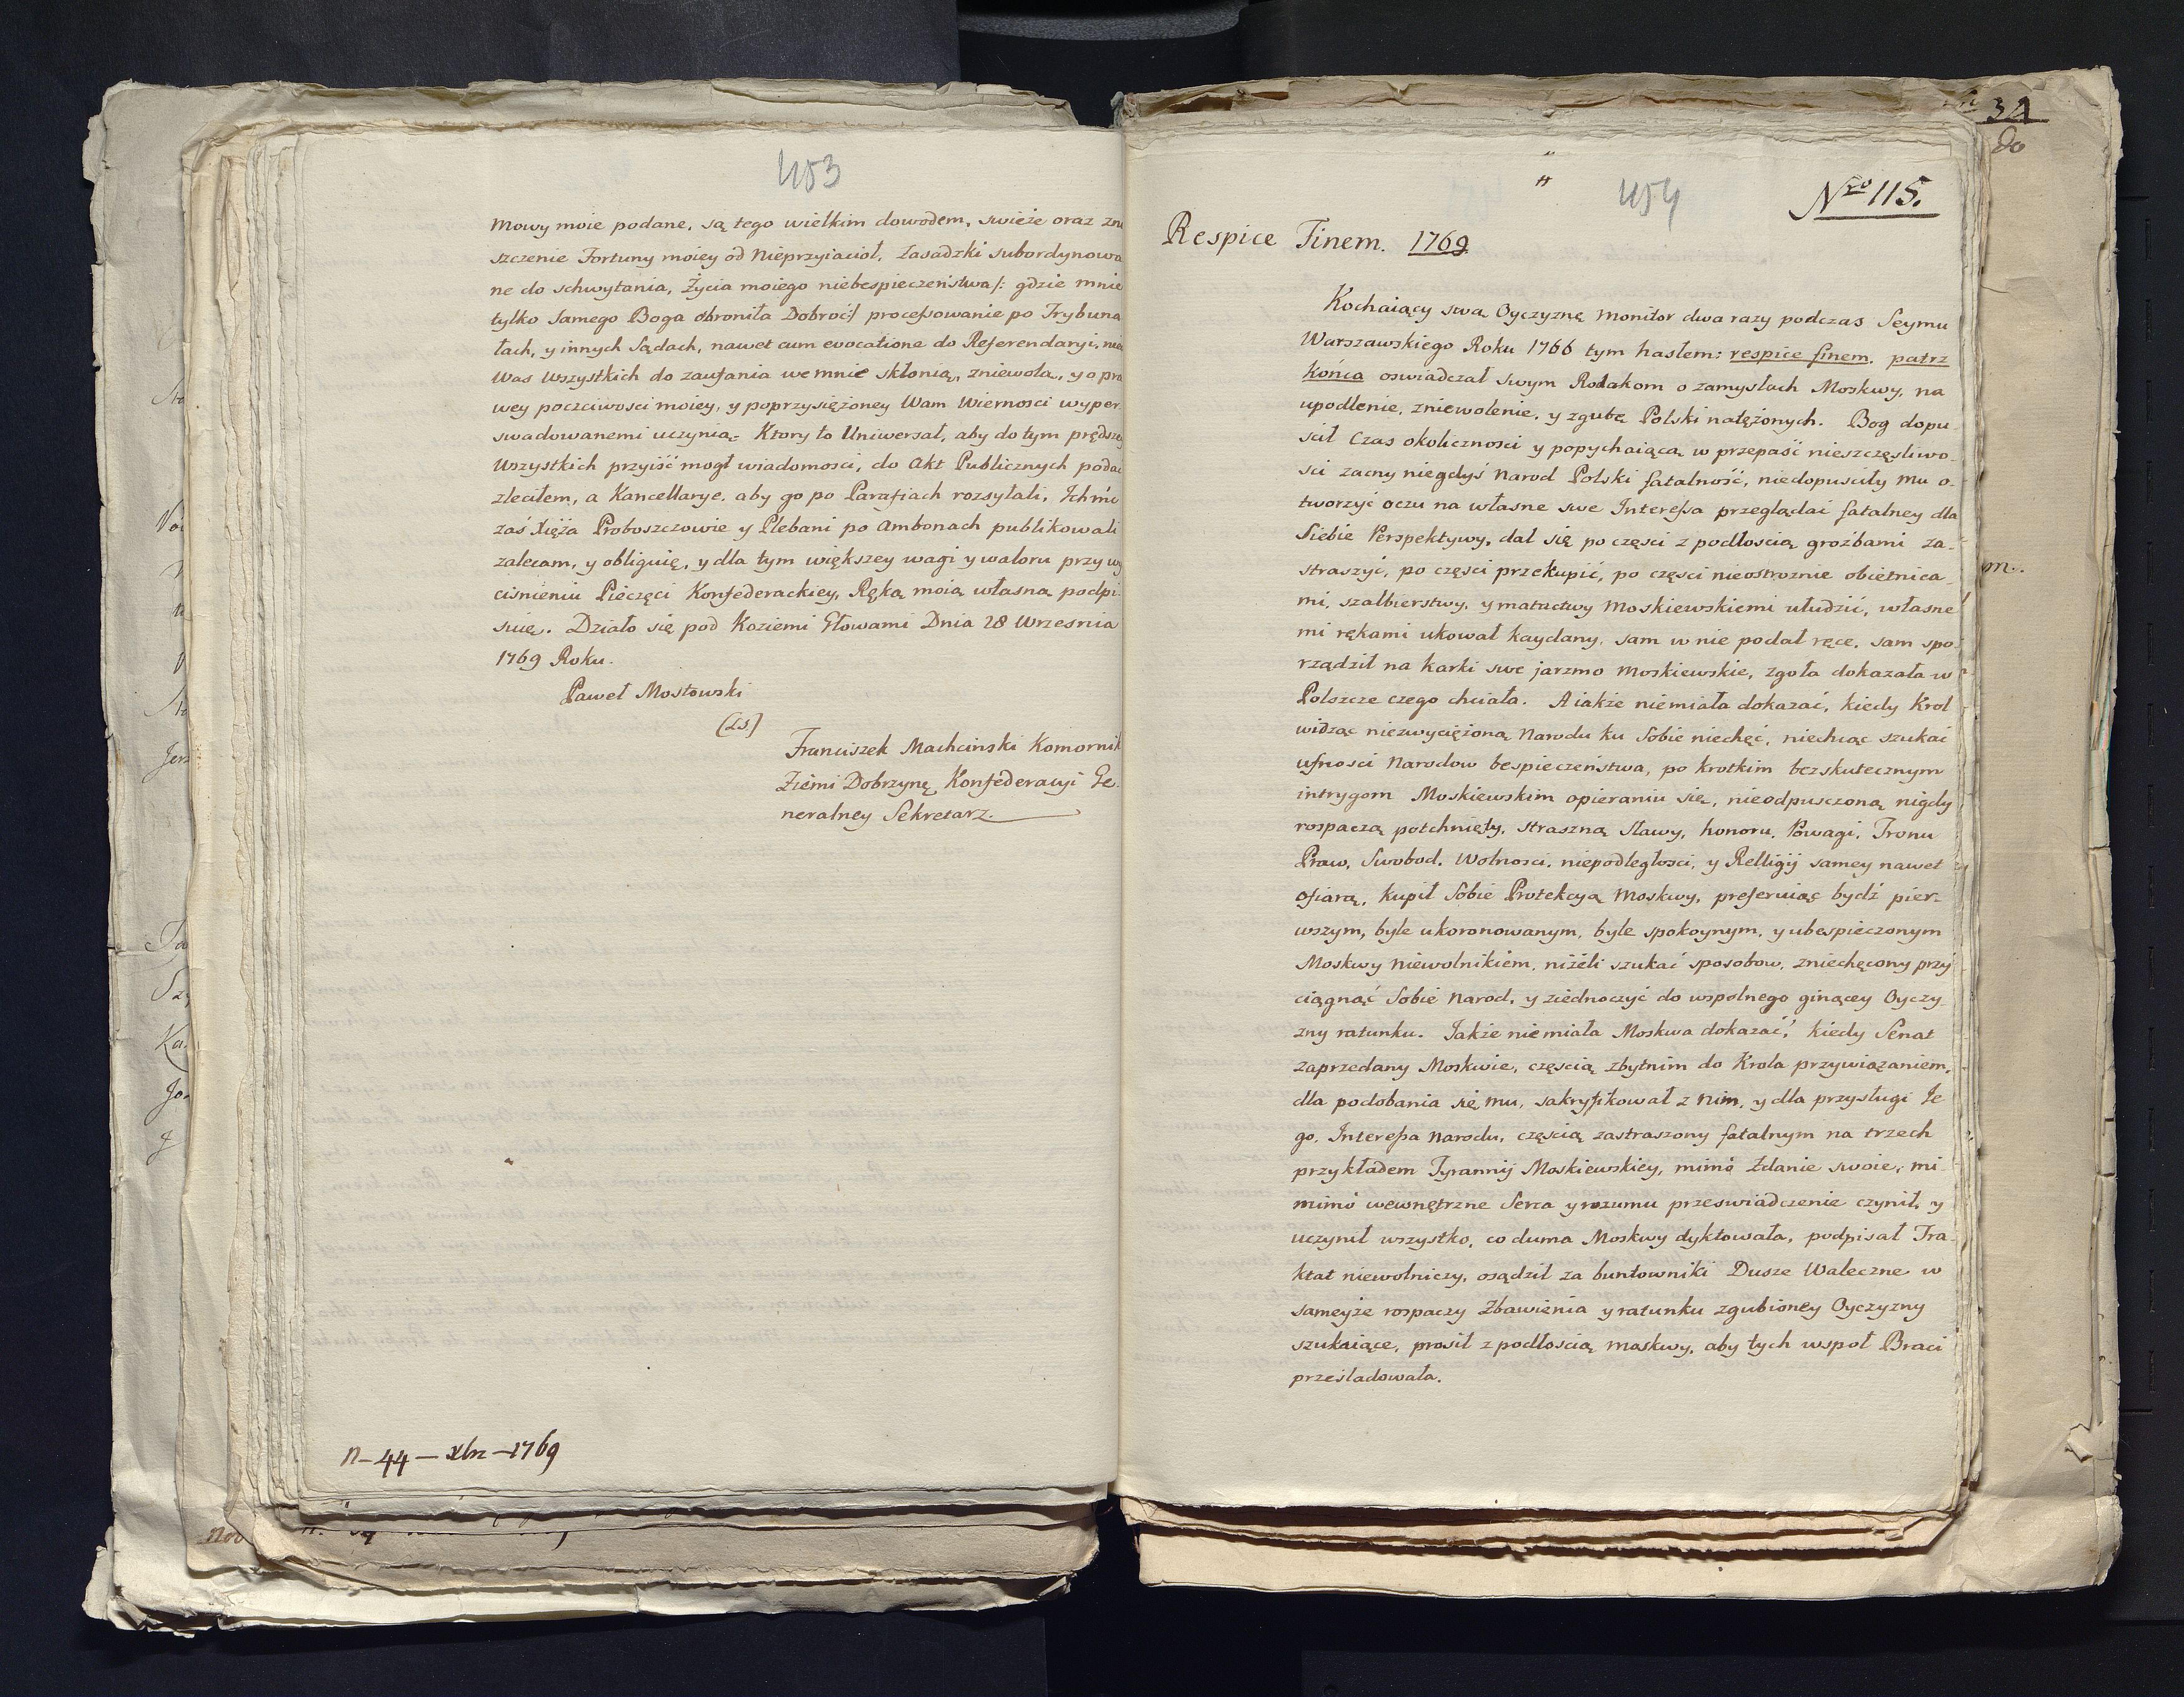 453
Mowy moie podane, są tego wielkim dowodem, swieże oraz zni
szczenie Fortuny moiey od Nieprzyiacioł, Zasadzki subordynowa
ne do schwytania, Życia moiego niebespieczeństwa/: gdzie mnie
tylko Samego Boga obroniła Dobroć:/ processowanie po Trybuna
łach, y innych Sądach, nawet cum evocatione do Referendaryi,
Was Wszystkich do zaufania we mnie skłonią, zniewolą, y o pra
wey poczciwosci moiey, y poprzysiężoney Wam Wiernosci wyper
swadowanemi uczynią. Ktory to Uniwersał, aby do tym prędszey
Wszystkich przyiść mogł wiadomosci, do Akt Publicznych podać
zleciłem, a Kancellarye, aby go po Parafiach rozsyłali, Ichmć
zaś Xięża Proboszczowie y Plebani po Ambonach publikowali
zalecam, y obliguię, y dla tym większey wagi y waloru przy wy
ciśnieniu Pieczęci Konfederackiey, Ręką moią własną podpi
suię. Działo się pod Koziemi Głowami Dnia 28 Wrzesnia
1769 Roku.
Paweł Mostowski
(LS)
Franciszek Machcinski Komornik
Ziemi Dobrzynę, Konfederacyi Ge
neralney Sekretarz.
n-44-xbr-1769
34
do
454
Nro 115.
Respice Finem. 1769
Kochaiący swą Oyczyznę Monitor dwa razy podczas Seymu
Warszawskiego Roku 1766 tym hasłem: respice finem. patrz
końca oswiadczał swym Rodakom o zamysłach Moskwy, na
upodlenie, zniewolenie, y zgubę Polski natężonych. Bog dopu
scił Czas okolicznosci y popychaiącą w przepaść nieszczęsliwo-
sci zacny niegdyś Narod Polski fatalność, niedopusciły mu o-
tworzyć oczu na własne swe Interessa przeglądai fatalney dla
Siebie Perspektywy, dał się po częsci z podłoscią groźbami za-
straszyć, po częsci przekupić, po częsci nieostroznie obietnica
mi, szalbierstwy, y matactwy Moskiewskiemi ułudzić, własne
mi rękami ukował kaydany, sam w nie podał ręce, sam spo
rządził na karki swe jarzmo Moskiewskie, zgoła dokazała w
Polszcze czego chciała. A iakże niemiała dokazać, kiedy Krol
widząc niezwyciężoną Narodu ku Sobie niechęć, niechcąc szukać
ufnosci Narodow bespieczeństwa, po krotkim bezskutecznym
intrygom Moskiewskim opieraniu się, nieodpusczoną nigdy
rospaczą potchnięty, straszną Sławy, honoru, Powagi, Tronu
Praw, Swobod, Wolnosci, niepodległosci, y Relligij samey nawet
ofiarą, kupił Sobie Protekcyą Moskwy, preferuiąc bydź pier-
wszym, byle ukoronowanym, byle spokoynym, y ubespieczonym
Moskwy Niewolnikiem, niżeli szukać sposobow, zniechęcony przy
ciągnąć Sobie Narod, y ziednoczyć do wspolnego ginącey Oyczy
zny ratunku. Jakże niemiała Moskwa dokazać, kiedy Senat
zaprzedany Moskwie, częscią zbytnim do Krola przywiązaniem,
dla podobania się mu, sakryfikował z nim, y dla przysługi Je
go, Interessa Narodu, częscią zastraszony fatalnym na trzech
przykładem Tyrannij Moskiewskiey, mimo Zdanie swoie, mi
mimo wewnętrzne Serca y rozumu przeswiadczenie czynił, y
uczynił wszystko, co duma Moskwy dyktowała, podpisał Tra
ktat niewolniczy, osądził za buntowniki Dusze Waleczne w
sameyże rospaczy Zbawienia y ratunku zgubioney Oyczyzny
szukaiące, prosił z podłoscią Moskwy, aby tych wspoł Braci
przesladowała.